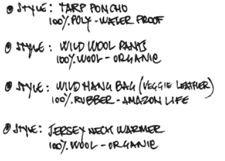 STYLE: TARP PONCHO
100% POLY - WATER PROOF
STYLE: WILD WOOL PANTS
100% WOOL - ORGANIC
STYLE: WILD HANG BAG (VEGGIE LEATHER)
100% RUBBER - AMAZON LIFE
STYLE: JERSEY NECK WARMER
100% WOOL - ORGANIC